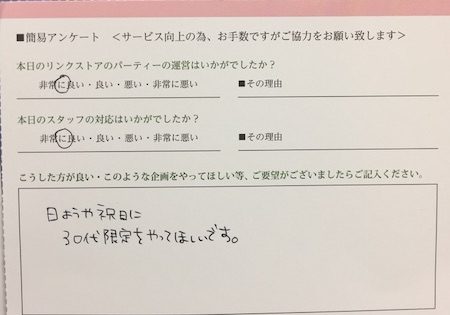 ■簡易アンケート <サービス向上の為、お手数ですがご協力をお願い致します>
本日のリンクストアのパーティーの運営はいかがでしたか?
非常に良い・良い・悪い・非常に悪い ■その理由
本日のスタッフの対応はいかがでしたか?
非常に良い・良い・悪い・非常に悪い ■その理由
こうした方が良い・このような企画をやってほしい等、ご要望がございましたらご記入ください。
日ようや祝日に
30代限定をやってほしいです。